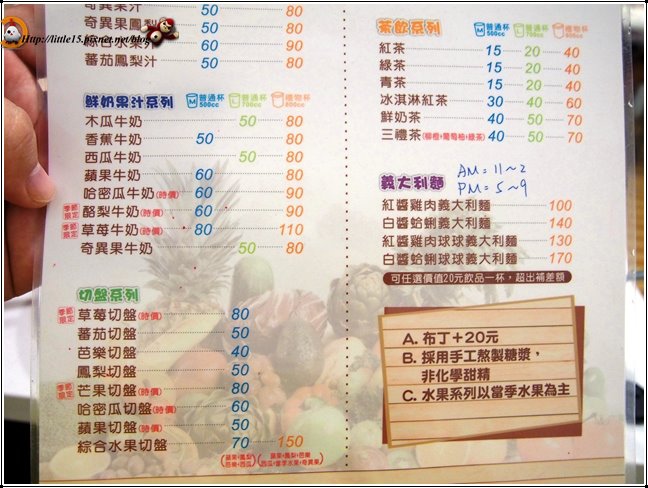 Http://little15.pixnet.net/blog
奇異果汁 50 80
奇異果鳳梨 50 80
綜合水果汁 60 90
蕃茄鳳梨汁 50 80
鮮奶果汁系列 M 普通杯 500cc L 普通杯 700cc 禮物杯 800cc
木瓜牛奶 50 80
香蕉牛奶 50 80
西瓜牛奶 50 80
蘋果牛奶 60 80
哈密瓜牛奶(時價) 60 90
季節限定 酪梨牛奶(時價) 60 90
季節限定 草莓牛奶(時價) 80 110
奇異果牛奶 50 80
切盤系列
季節限定 草莓切盤(時價) 80
蕃茄切盤 50
芭樂切盤 40
鳳梨切盤 50
季節限定 芒果切盤(時價) 80
哈密瓜切盤(時價) 60
蘋果切盤(時價) 50
綜合水果切盤 70 150
茶飲系列 M 普通杯 500cc L 普通杯 700cc 禮物杯 800cc
紅茶 15 20 40
綠茶 15 20 40
青茶 15 20 40
冰淇淋紅茶 30 40 60
鮮奶茶 40 50 70
三禮茶(柳橙+葡萄柚+綠茶) 40 50 70
義大利麵 AM=11~2
PM=5~9
紅醬雞肉義大利麵 100
白醬蛤蜊義大利麵 140
紅醬雞肉球球義大利麵 130
白醬蛤蜊球球義大利麵 170
可任選價值20元飲品一杯,超出補差額
A. 布丁+20元
B. 採用手工熬製糖漿,
非化學甜精
C. 水果系列以當季水果為主